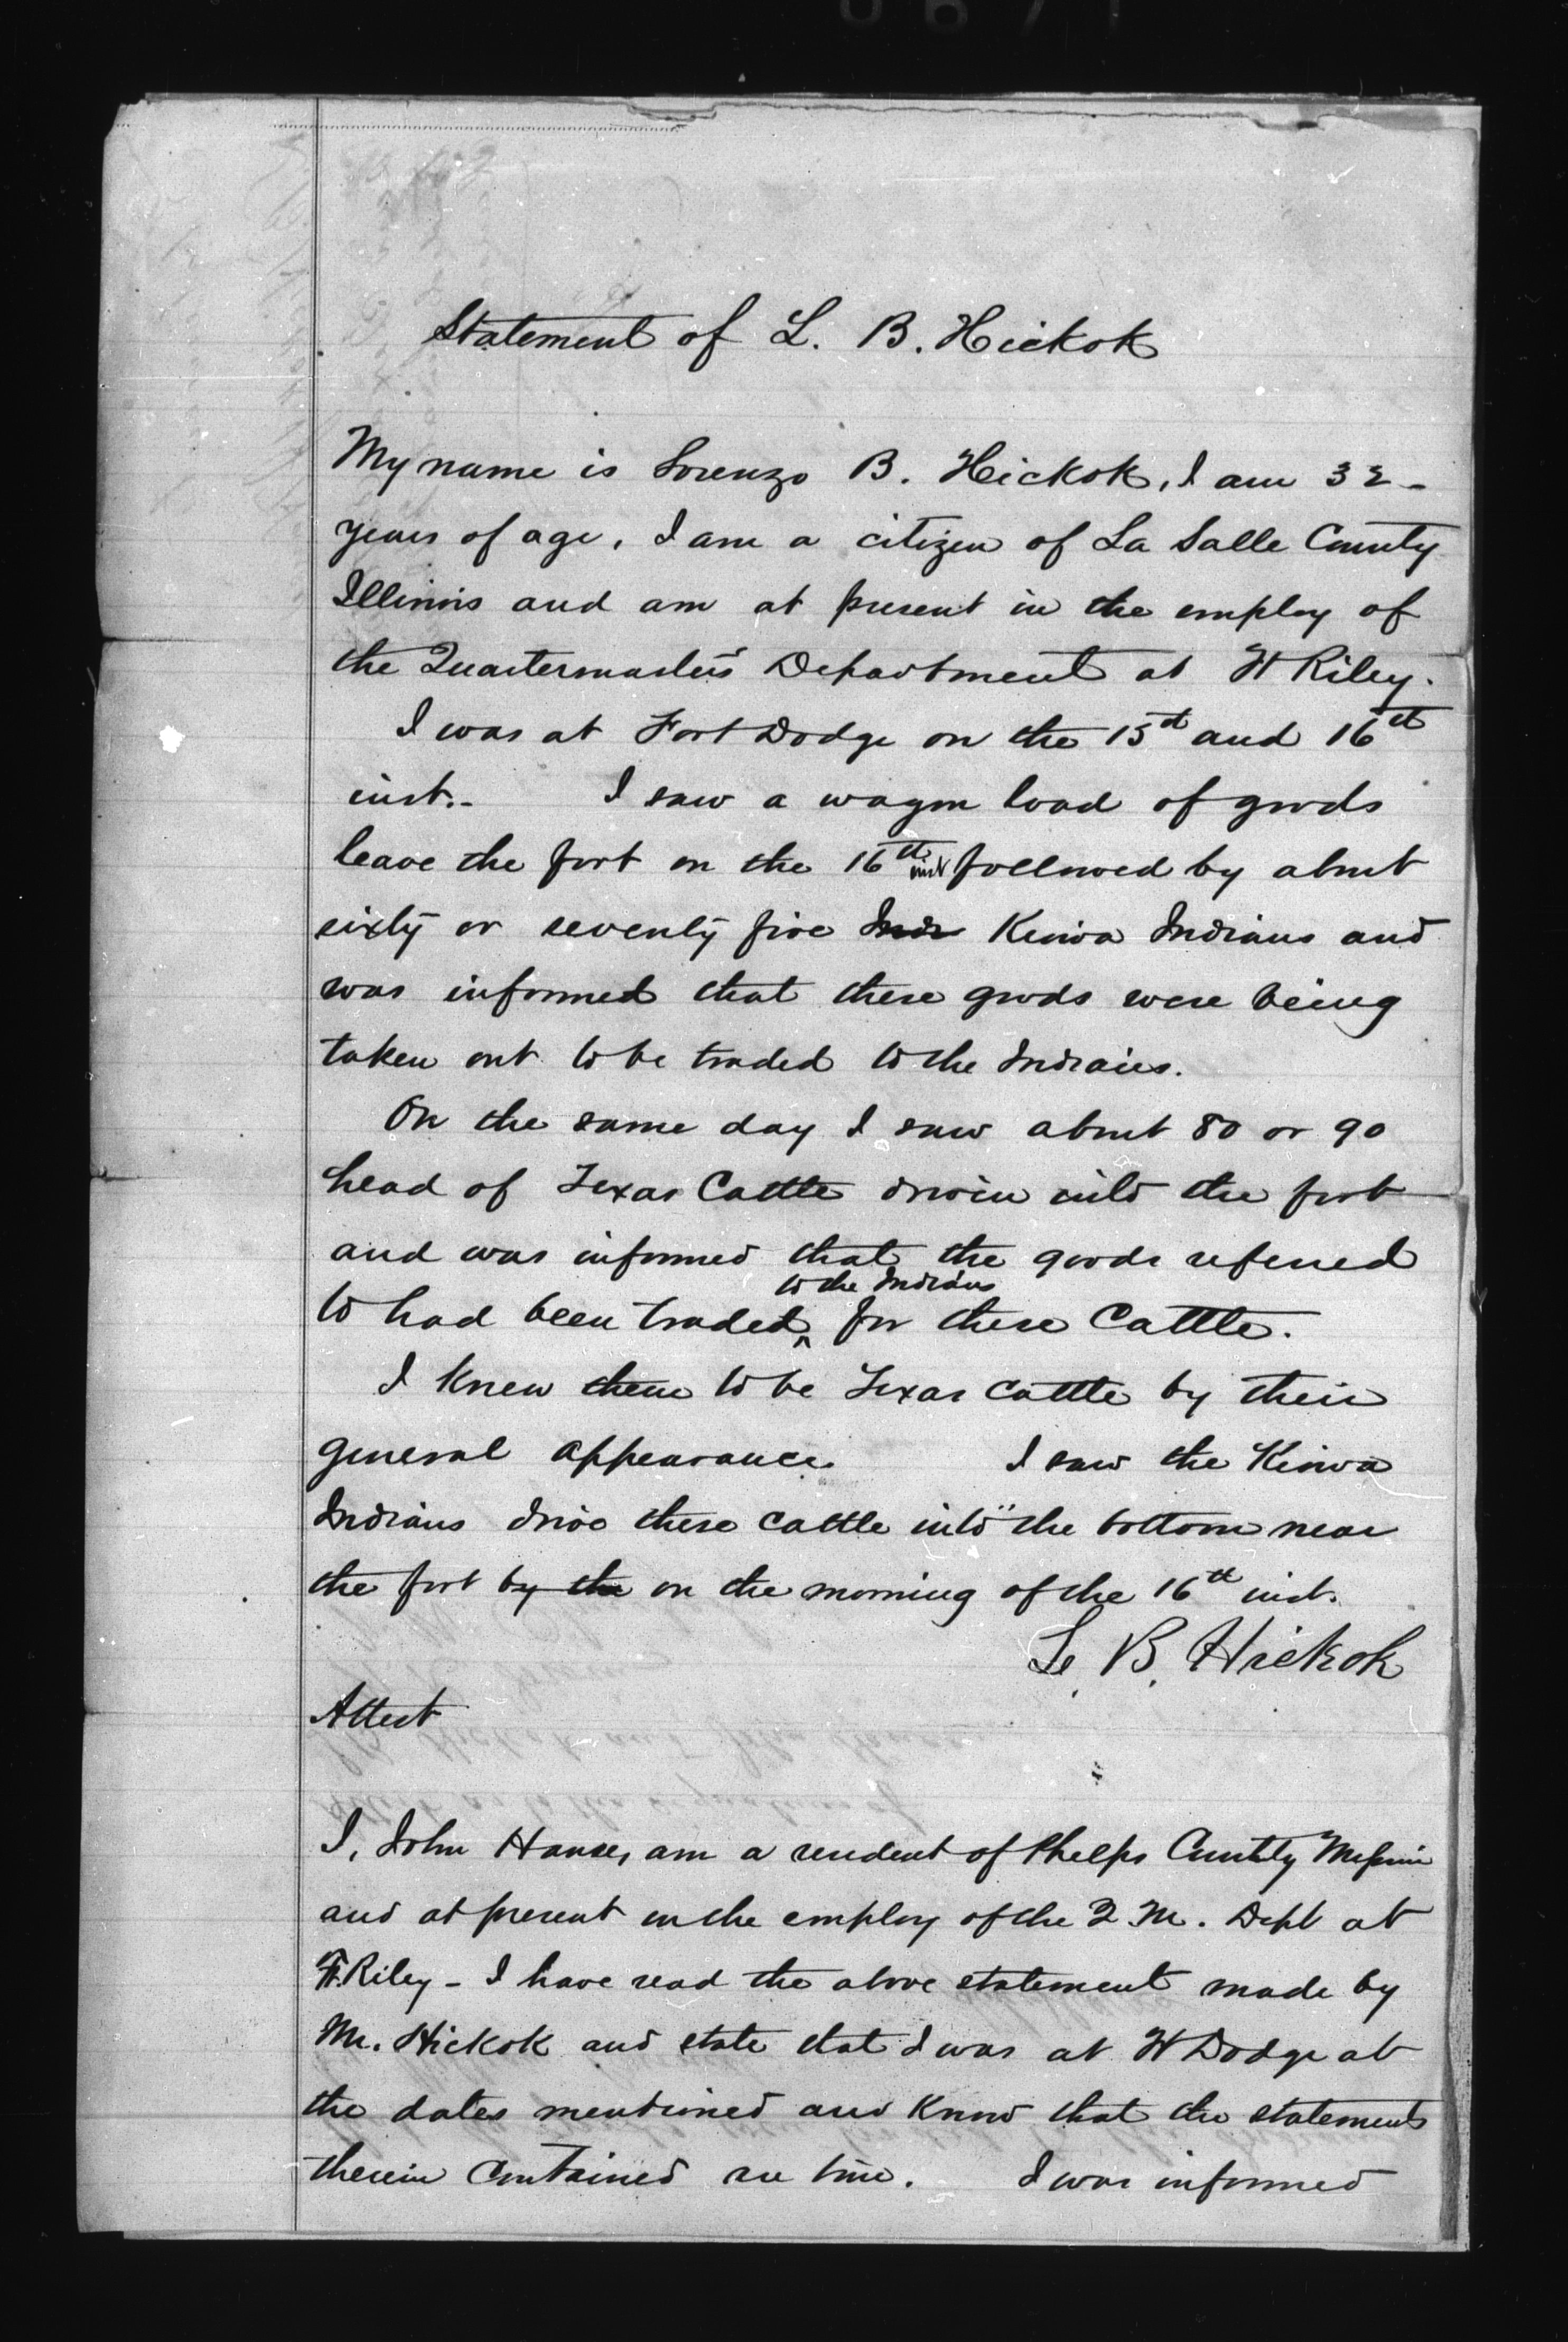 Statement of L. B. Hickok
My name is Lorenzo B. Hickok, I am 32 -
years of age, I am a citizen of La Salle County
Illinois and am at present in the employ of
the Quartermaster's Department at Ft Riley.
I was at Fort Dodge on the 15th and 16th
inst.- I saw a wagon load of goods
leave the fort on the 16th inst followed by about
sixty or seventy five Indr Kiowa Indians and
was informed that these goods were being
taken out to be traded to the Indians.
On the same day I saw about 80 or 90
head of Texas Cattle driven into the fort
and was informed that the goods referred
to the Indians
to had been traded ^ for these Cattle.
I knew them to be Texas cattle by their
general appearance. I saw the Kiowa
Indians drive these cattle into the bottom near
the fort by the on the morning of the 16th inst.
L. B. Hickok
Attest
I, John Hanser, am a resident of Phelps County Missouri
and at present in the employ of the Q M. Dept at
Ft. Riley - I have read the above statement made by
Mr. Hickok and state that I was at Ft Dodge at
the dates mentioned and know that the statements
therein contained are true. I was informed